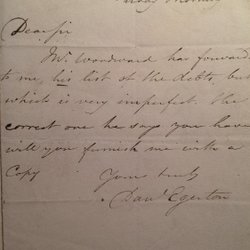 Dear Sir
Mr. Woodward has forward
to me, his list of the debts, but
which is very imperfect. The
correct one he says you have
will you furnish me with a
Copy
Yours truly
Danl Egerton